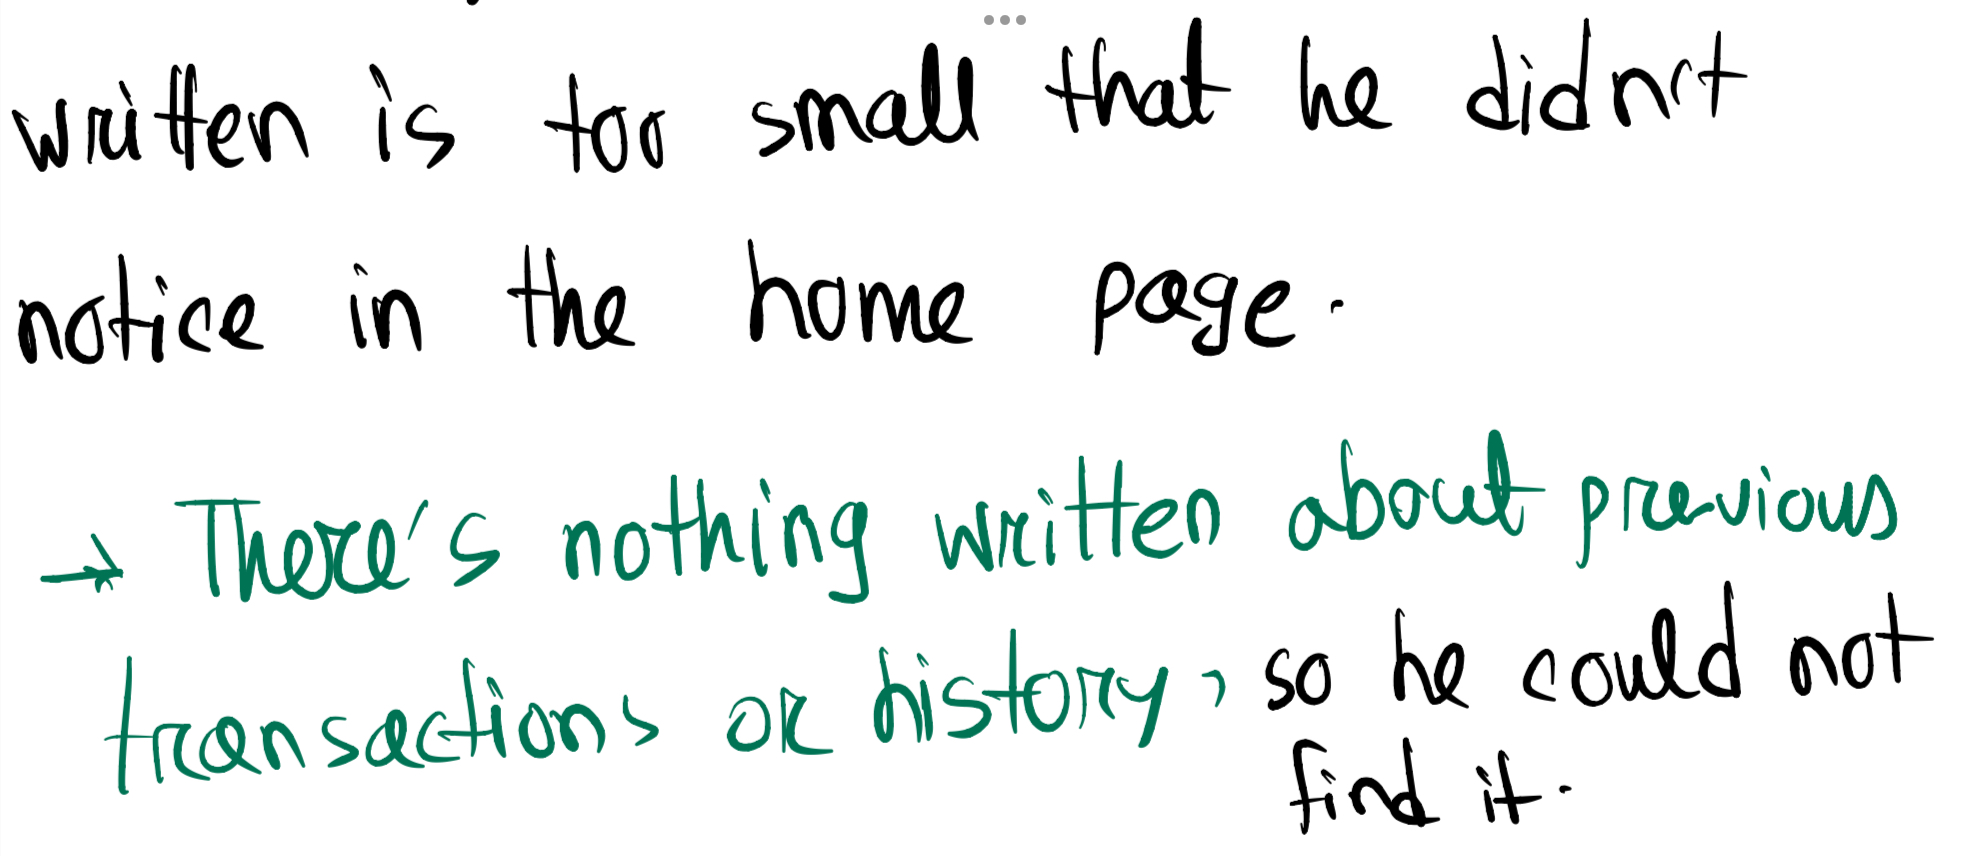 written is too small that he didn't
notice in the home page.
→ There's nothing written about previous
transactions or history, so he could not
find it.